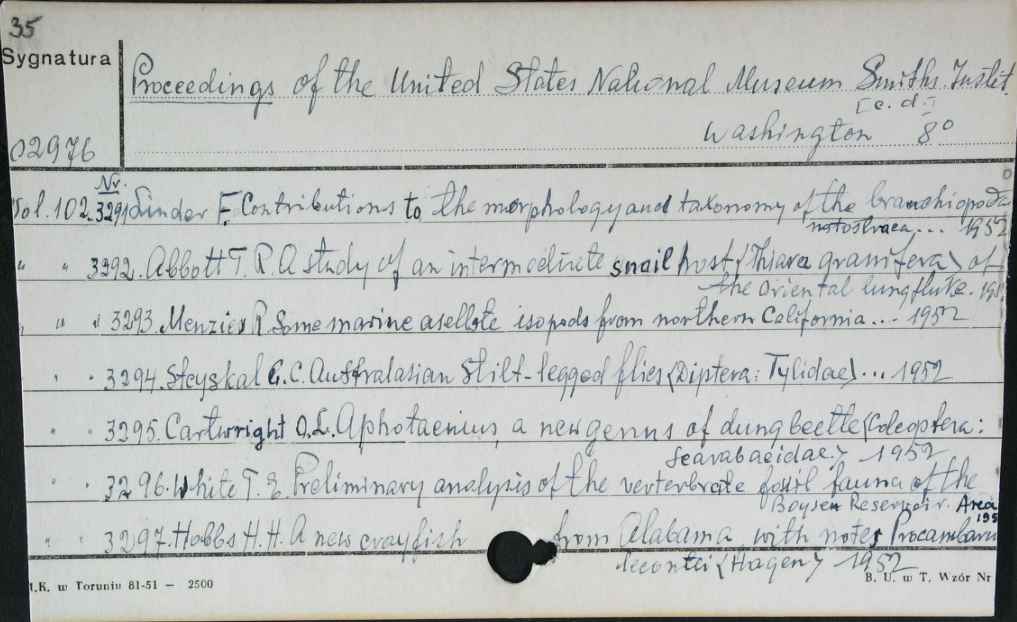 35
Sygnatura
Proceedings of the United States National Museum Smiths. Instit.
[c. d.]
Washington 8°
02976
Nr
Vol. 102. 3291 Linder F. Contributions to the morphology and taxonomy of the branchiopoda
notostraca... 1952
" " 3292. Abbott T. R. A study of an intermediete snail host (Thiara granifera) of
the Oriental lungfluke. 195
" " " 3293. Menzies R. Some marine asellote isopods from northern California... 1952
" " 3294. Steyskal G. C. Australasian Stilt-legged flies (Diptera: Tylidae)... 1952
" " 3295. Cartwright O. L. Aphotaenius, a new genus of dung beetle (Coleoptera:
Scarabaeidae) 1952
" " 3296. White T. E. Preliminary analysis of the verterbrate fossil fauna of the
Boysen Reservoir. Area
195
" " 3297. Hobbs H. H. A new crayfish from Alabama with notes Procambaru
lecontei (Hagen) 1952
.K. w Toruniu 81-51 — 2500
B. U. w T. Wzór Nr